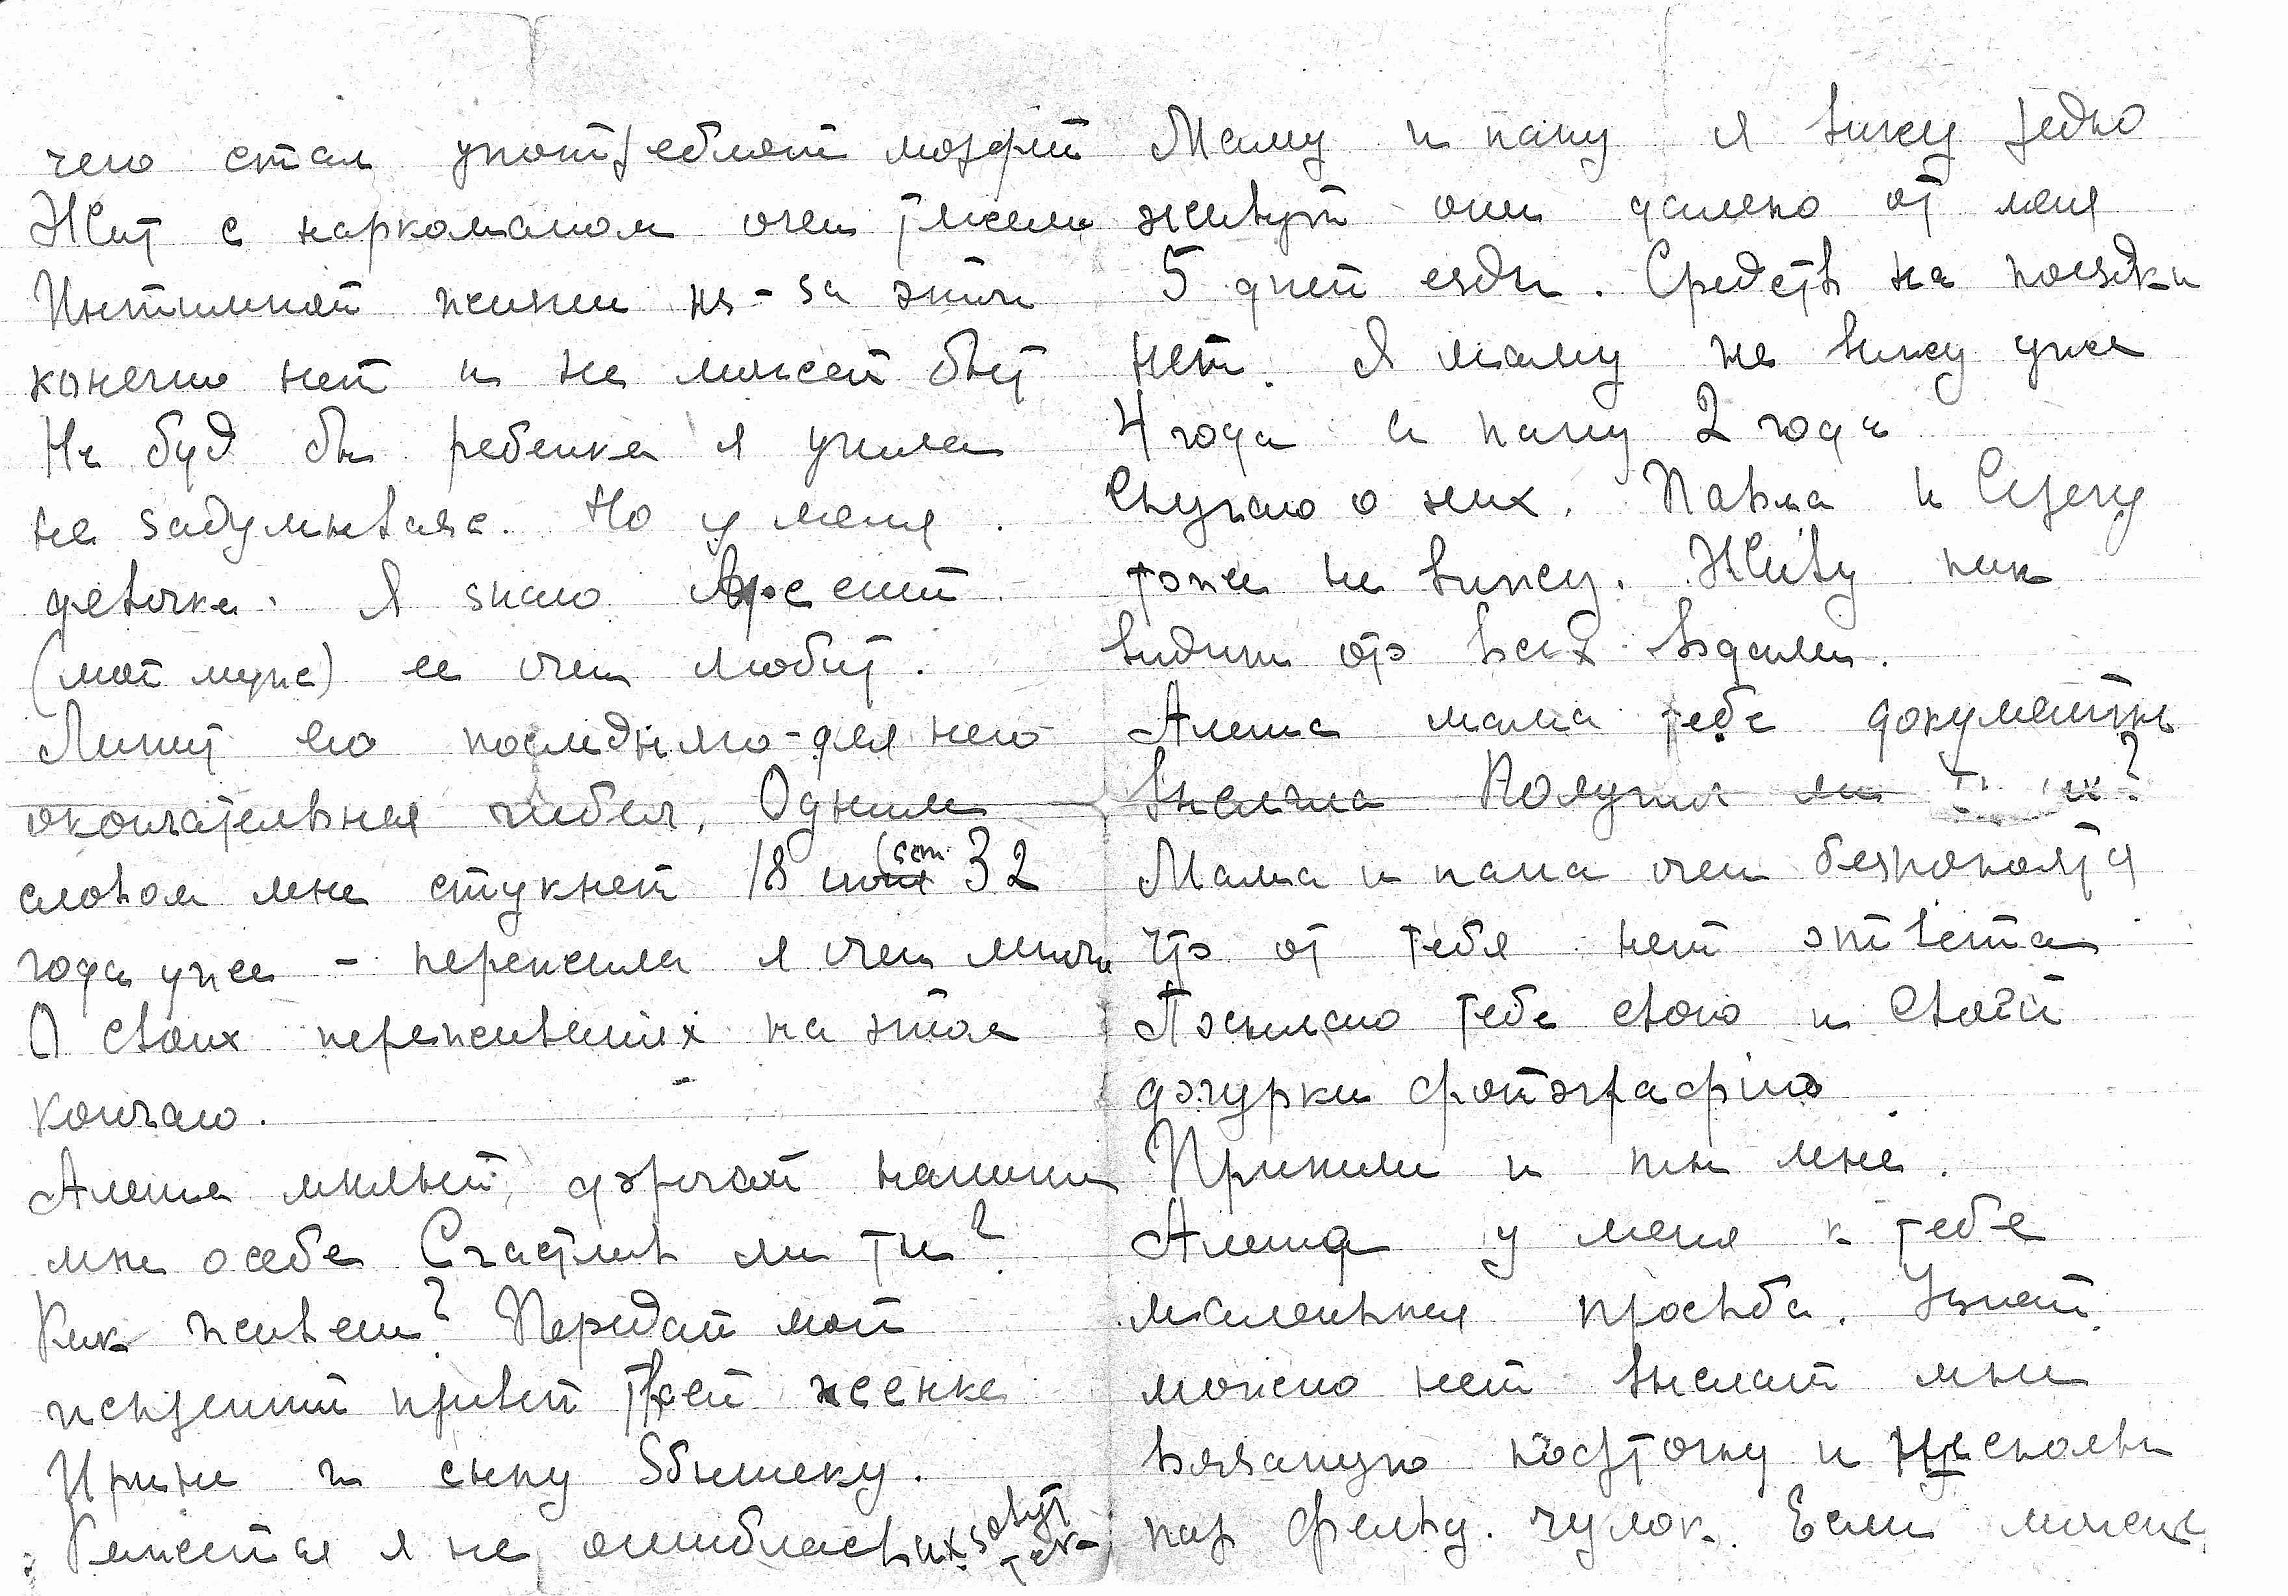 чего стал употреблят морфий
Жит с наркоманом очен тяжело
Интимной жизни из-за этого
конечно нет и не может быт
Не буд бы ребенка я ушла
не задумываяс. Но у меня
девочка. Я знаю Арсений
(мой муж) ее очен любит.
Лишит его последнего - для него
окончательная гибел. Одним
словом мне стукнет 18 (сент. 32
года уже - пережила я очен много
О своих переживаниях на этом
кончаю.
Алеша милый, дорогой напиши
мне о себе Счастлив ли ты?
Как живеш? Передай мой
искренний привет твоей женке
Ирине и сыну Збышеку.
Кажется я не ошиблась их зовут так
Маму и папу я вижу редко
живут они далеко от меня
5 дней езды. Средств на поездки
нет. Я маму не вижу уже
4 года а папу 2 года
Скучаю о них. Павла и Серену
тоже не вижу. Живу как
видиш от всех вдали.
Алеша мама тебе документы
выслала Получил ли ты их?
Мама и папа очен безпокоятся
что от тебя нет ответа
Посылаю тебе свою и своей
дочурки фотографию
Пришли и ты мне.
Алеша у меня к тебе
маленькая просьба. Узнай
можно нет выслат мне
вязаную кофточку и несколько
пар фельд. чулок. Если можеш